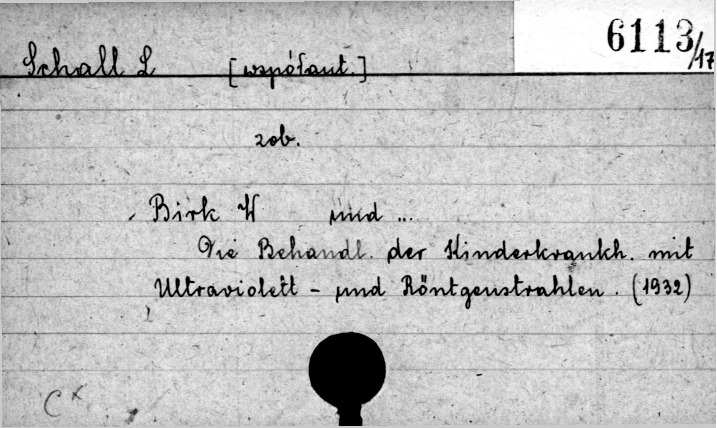 6113/17
Schall L [współaut.]
zob.
Birk W und ...
Die Behandl. der Kinderkrankh. mit
Ultraviolett - und Röntgenstrahlen. (1932)
C x